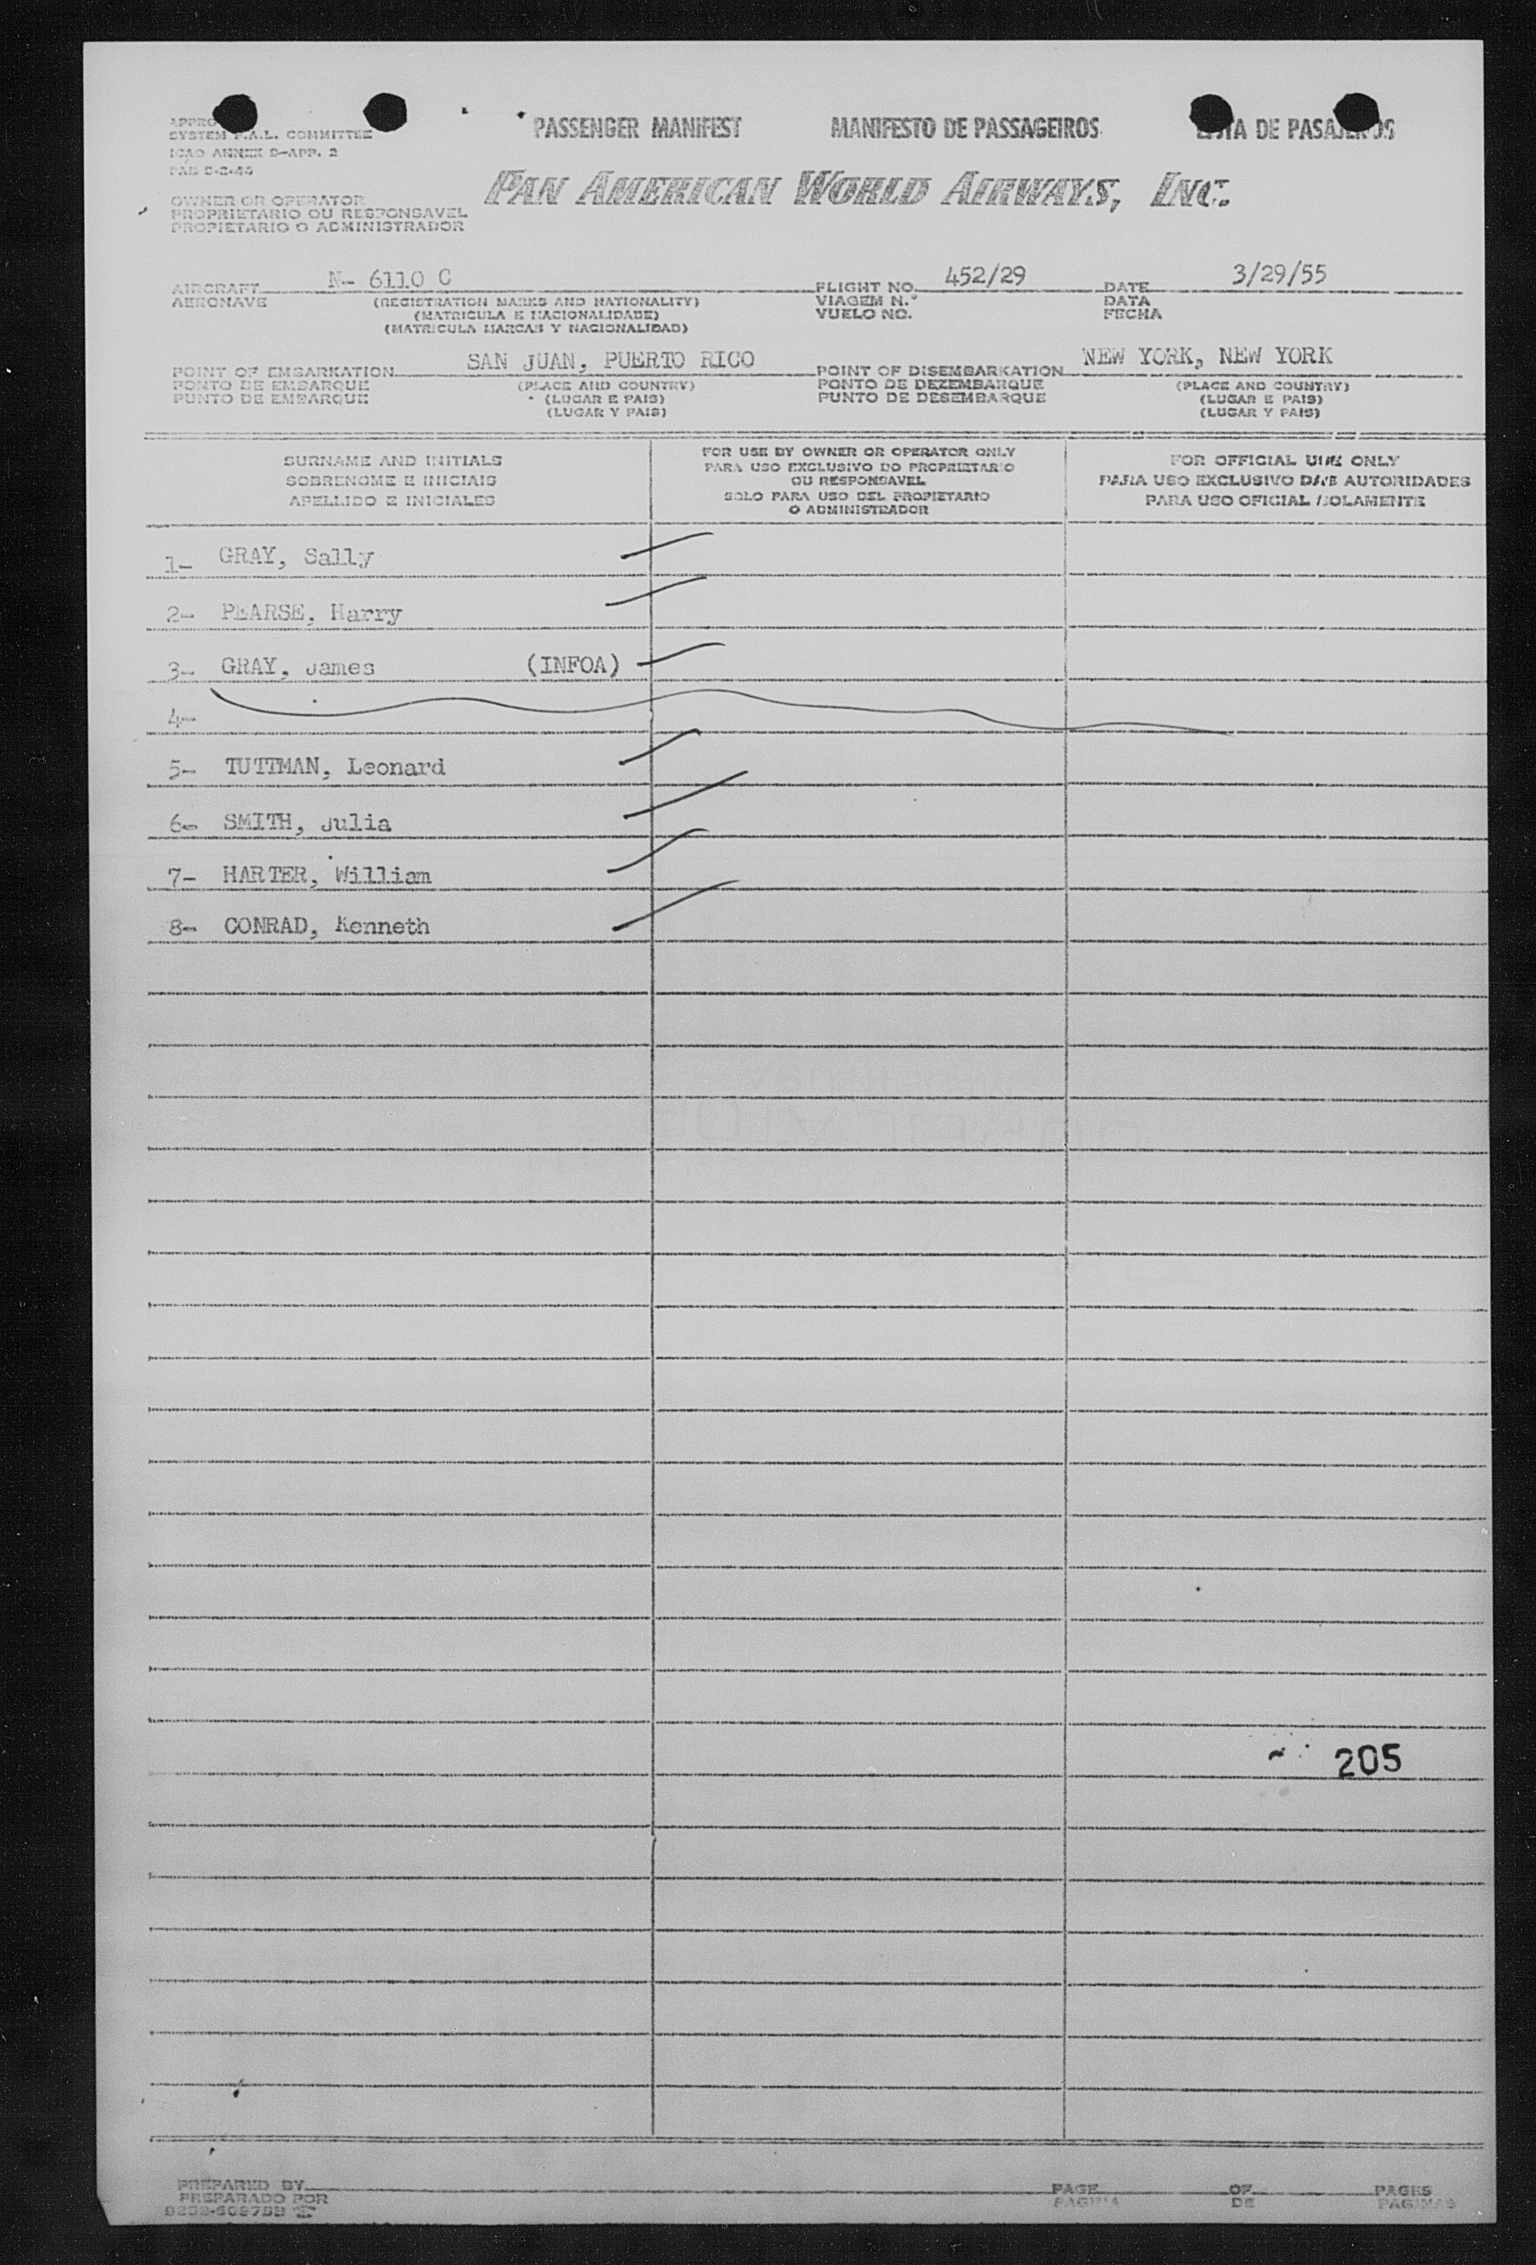 PASSENGER MANIFEST MANIFESTO DE PASSAGEIROS DE
SYSTEM F.A.L. COMMITTEE
ICAO ANNEX 9-APP. 2
OWNER OR OPERATOR
PROPRIETARIO OU RESPONSAVEL
PROPIETARIO O ADMINISTRADOR
PAN AMERICAN WORLD AIRWAYS, INC.
AIRCRAFT N- 6110 C FLIGHT NO. 452/29 DATE 3/29/55
AERONAVE (REGISTRATION MARKS AND NATIONALITY) VIAGEM N.º DATA
(MATRICULA E NACIONALIDADE) VUELO NO. FECHA
(MATRICULA MARCAS Y NACIONALIDAD)
POINT OF EMBARKATION SAN JUAN, PUERTO RICO POINT OF DISEMBARKATION NEW YORK, NEW YORK
PONTO DE EMBARQUE (PLACE AND COUNTRY) PONTO DE DEZEMBARQUE (PLACE AND COUNTRY)
PUNTO DE EMBARQUE (LUGAR E PAIS) PUNTO DE DESEMBARQUE (LUGAR E PAIS)
(LUGAR Y PAIS) (LUGAR Y PAIS)
SURNAME AND INITIALS
SOBRENOME E INICIAIS
APELLIDO E INICIALES
FOR USE BY OWNER OR OPERATOR ONLY
PARA USO EXCLUSIVO DO PROPRIETARIO
OU RESPONSAVEL
SOLO PARA USO DEL PROPIETARIO
O ADMINISTRADOR
FOR OFFICIAL USE ONLY
PARA USO EXCLUSIVO DAS AUTORIDADES
PARA USO OFICIAL SOLAMENTE
1- GRAY, Sally
2- PEARSE, Harry
3- GRAY, James (INFOA)
4-
5- TUTTMAN, Leonard
6- SMITH, Julia
7- HARTER, William
8- CONRAD, Kenneth
205
PREPARED BY PAGE OF PAGES
PREPARADO POR PAGINA DE PAGINAS